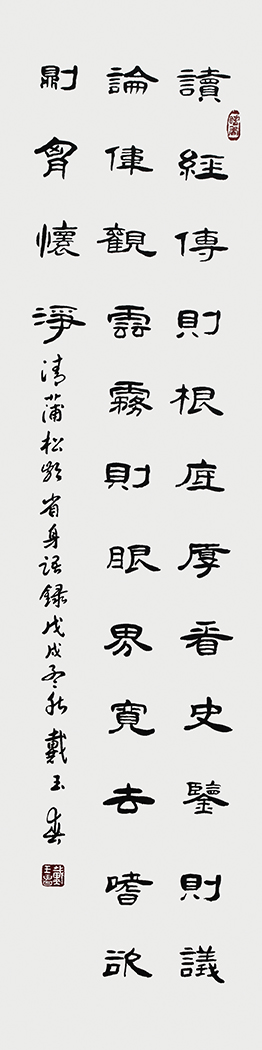 讀經傳則根底厚看史鑒則議
論偉觀雲霧則眼界寬去嗜欲
則胷懷淨
清蒲松齡省身語錄戊戌秋戴玉